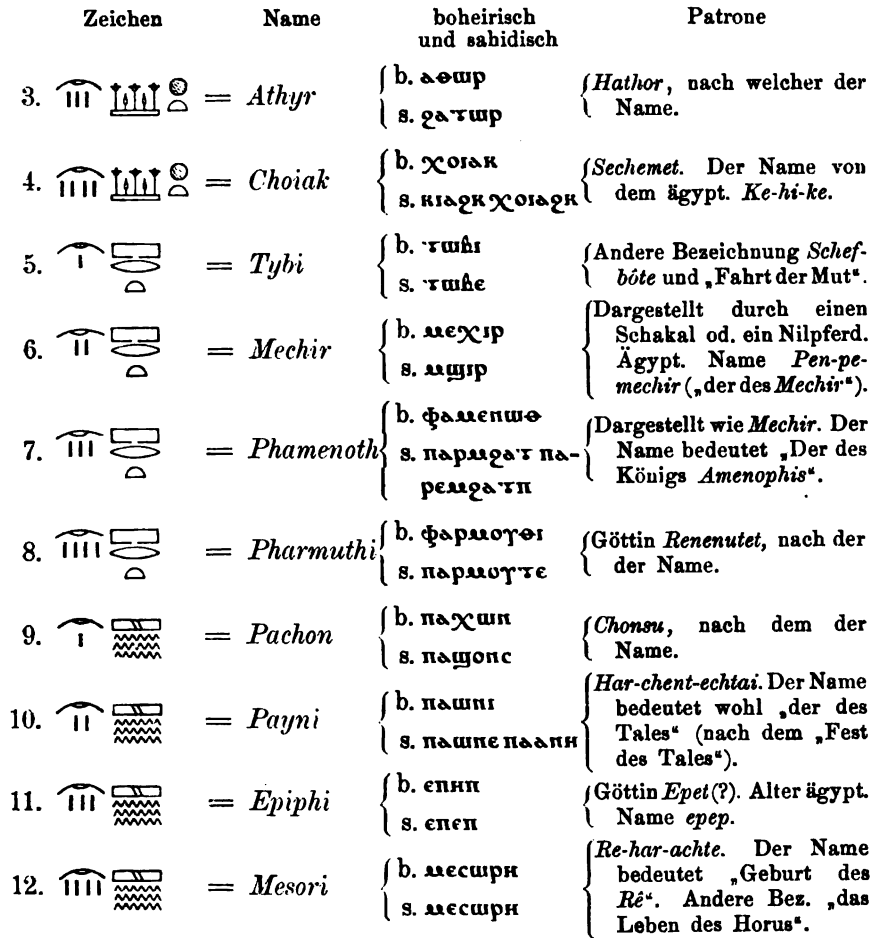 Zeichen Name boheirisch und sahidisch Patrone
3. = Athyr
b. ⲁⲑⲱⲣ
s. ϩⲁⲧⲱⲣ
Hathor, nach welcher der
Name.
4. = Choiak
b. ⲭⲟⲓⲁⲕ
s. ⲕⲓⲁϩⲕ ⲭⲟⲓⲁϩⲕ
Sechemet. Der Name von
dem ägypt. Ke-hi-ke.
5. = Tybi
b. ⲧⲱⲃⲓ
s. ⲧⲱⲃⲉ
Andere Bezeichnung Schef-
bôte und „Fahrt der Mut“.
6. = Mechir
b. ⲙⲉⲭⲓⲣ
s. ⲙϣⲓⲣ
Dargestellt durch einen
Schakal od. ein Nilpferd.
Ägypt. Name Pen-pe-
mechir („der des Mechir“).
7. = Phamenoth
b. ⲫⲁⲙⲉⲛⲱⲑ
s. ⲡⲁⲣⲙϩⲁⲧ ⲡⲁ-
ⲣⲉⲙϩⲁⲧⲡ
Dargestellt wie Mechir. Der
Name bedeutet „Der des
Königs Amenophis“.
8. = Pharmuthi
b. ⲫⲁⲣⲙⲟⲩⲑⲓ
s. ⲡⲁⲣⲙⲟⲩⲧⲉ
Göttin Renenutet, nach der
der Name.
9. = Pachon
b. ⲡⲁⲭⲱⲛ
s. ⲡⲁϣⲟⲛⲥ
Chonsu, nach dem der
Name.
10. = Payni
b. ⲡⲁⲱⲛⲓ
s. ⲡⲁⲱⲛⲉ ⲡⲁⲁⲛⲏ
Har-chent-echtai. Der Name
bedeutet wohl „der des
Tales“ (nach dem „Fest
des Tales“).
11. = Epiphi
b. ⲉⲡⲏⲡ
s. ⲉⲡⲉⲡ
Göttin Epet (?). Alter ägypt.
Name epep.
12. = Mesori
b. ⲙⲉⲥⲱⲣⲏ
s. ⲙⲉⲥⲱⲣⲏ
Re-har-achte. Der Name
bedeutet „Geburt des
Rê“. Andere Bez. „das
Leben des Horus“.